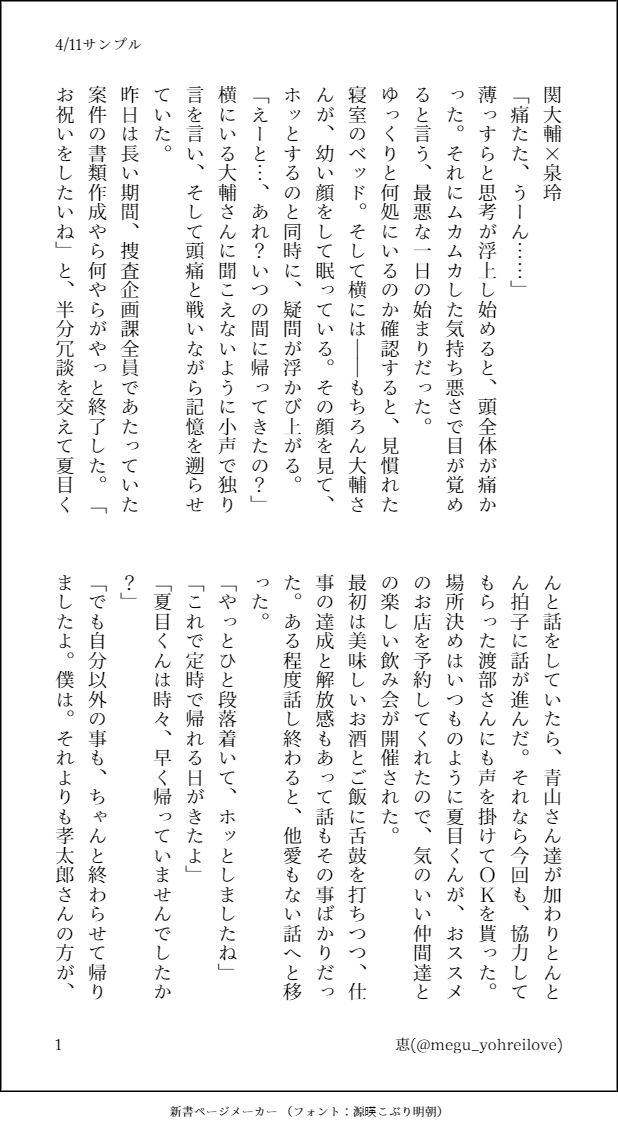 4/11サンプル
関大輔×泉玲
「痛たた、うーん……」
薄っすらと思考が浮上し始めると、頭全体が痛か
った。それにムカムカした気持ち悪さで目が覚め
ると言う、最悪な一日の始まりだった。
ゆっくりと何処にいるのか確認すると、見慣れた
寝室のベッド。そして横には――もちろん大輔さ
んが、幼い顔をして眠っている。その顔を見て、
ホッとするのと同時に、疑問が浮かび上がる。
「えーと…、あれ？いつの間に帰ってきたの？」
横にいる大輔さんに聞こえないように小声で独り
言を言い、そして頭痛と戦いながら記憶を遡らせ
ていた。
昨日は長い期間、捜査企画課全員であたっていた
案件の書類作成やら何やらがやっと終了した。「
お祝いをしたいね」と、半分冗談を交えて夏目く
んと話をしていたら、青山さん達が加わりとんと
ん拍子に話が進んだ。それなら今回も、協力して
もらった渡部さんにも声を掛けてＯＫを貰った。
場所決めはいつものように夏目くんが、おススメ
のお店を予約してくれたので、気のいい仲間達と
の楽しい飲み会が開催された。
最初は美味しいお酒とご飯に舌鼓を打ちつつ、仕
事の達成と解放感もあって話もその事ばかりだっ
た。ある程度話し終わると、他愛もない話へと移
った。
「やっとひと段落着いて、ホッとしましたね」
「これで定時で帰れる日がきたよ」
「夏目くんは時々、早く帰っていませんでしたか
？」
「でも自分以外の事も、ちゃんと終わらせて帰り
ましたよ。僕は。それよりも孝太郎さんの方が、
1
恵(@megu_yohreilove)
新書ページメーカー（フォント：源暎こぶり明朝）